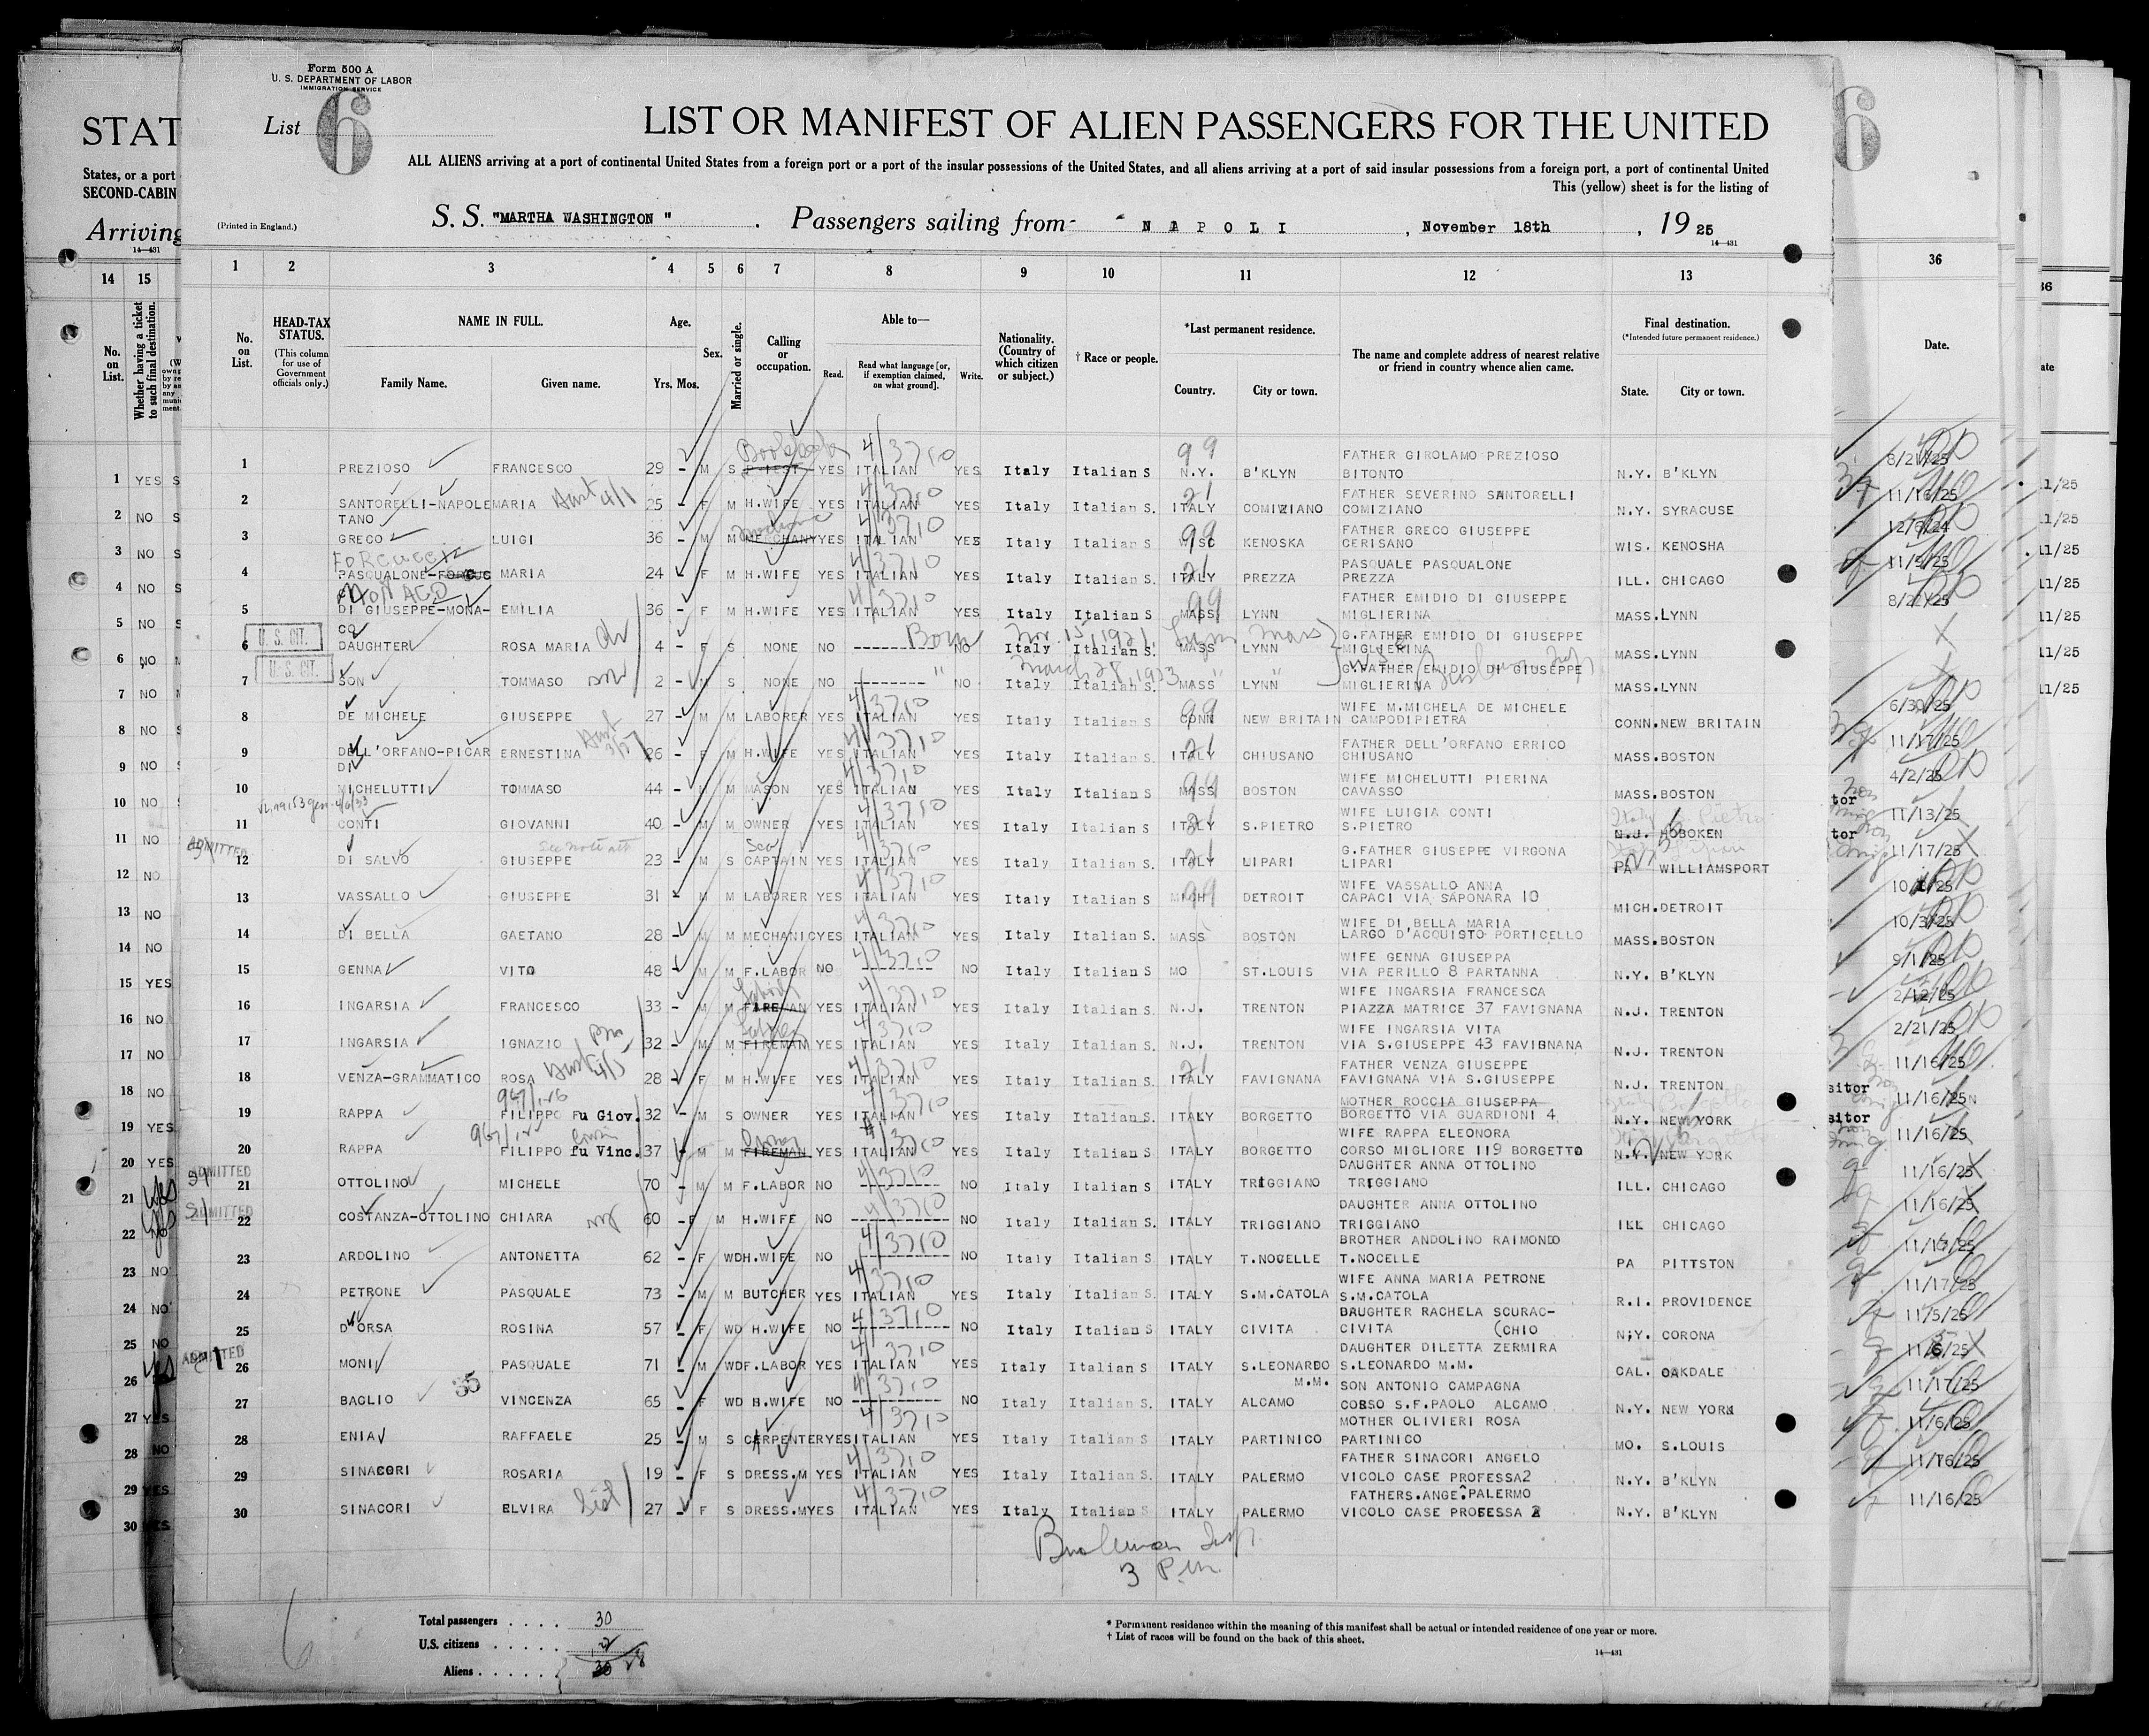 Form 500 A
U. S. DEPARTMENT OF LABOR
IMMIGRATION SERVICE
List 6
STAT
LIST OR MANIFEST OF ALIEN PASSENGERS FOR THE UNITED
6
ALL ALIENS arriving at a port of continental United States from a foreign port or a port of the insular possessions of the United States, and all aliens arriving at a port of said insular possessions from a foreign port, a port of continental United
States, or a port
This (yellow) sheet is for the listing of
SECOND-CABIN
Arriving
14—431
(Printed in England.)
S. S. "MARTHA WASHINGTON ". Passengers sailing from NAPOLI, November 18th, 1925
14—431
1 2 3 4 5 6 7 8 9 10 11 12 13
14 15
36
36
No. on List.
Whether having a ticket to such final destination.
No. on List.
HEAD-TAX STATUS.
(This column for use of Government officials only.)
NAME IN FULL.
Family Name. Given name.
Age.
Yrs. Mos.
Sex.
Married or single.
Calling or occupation.
Able to—
Read. Read what language [or, if exemption claimed, on what ground]. Write.
Nationality. (Country of which citizen or subject.)
† Race or people.
*Last permanent residence.
Country. City or town.
The name and complete address of nearest relative or friend in country whence alien came.
Final destination.
(*Intended future permanent residence.)
State. City or town.
Date.
ate
FATHER GIROLAMO PREZIOSO
1 PREZIOSO FRANCESCO 29 - M S YES ITALIAN YES Italy Italian S N.Y. B'KLYN BITONTO N.Y. B'KLYN 8/21/25
FATHER SEVERINO SANTORELLI
2 SANTORELLI-NAPOLE MARIA 25 - F M H.WIFE YES ITALIAN YES Italy Italian S. ITALY COMIZIANO COMIZIANO N.Y. SYRACUSE 11/16/25
TANO
FATHER GRECO GIUSEPPE
3 GRECO LUIGI 36 - M M MERCHANT YES ITALIAN YES Italy Italian S WISC KENOSKA CERISANO WIS. KENOSHA 12/6/24
FORCUCCI
PASQUALE PASQUALONE
4 PASQUALONE-FORCUC MARIA 24 - F M H.WIFE YES ITALIAN YES Italy Italian S ITALY PREZZA PREZZA ILL. CHICAGO 11/9/25
MONACO
FATHER EMIDIO DI GIUSEPPE
5 DI GIUSEPPE-MONA- EMILIA 36 - F M H.WIFE YES ITALIAN YES Italy Italian S MASS LYNN MIGLIERINA MASS. LYNN 8/22/25
CO
U. S. CIT.
Born Nov. 15, 1921, Lynn Mass
G.FATHER EMIDIO DI GIUSEPPE
6 DAUGHTER ROSA MARIA 4 - F S NONE NO -------- NO Italy Italian S. MASS LYNN MIGLIERINA MASS. LYNN
U. S. CIT.
" March 28, 1923 " "
G.FATHER EMIDIO DI GIUSEPPE
7 SON TOMMASO 2 - M S NONE NO -------- NO Italy Italian S MASS LYNN MIGLIERINA MASS. LYNN
WIFE M.MICHELA DE MICHELE
8 DE MICHELE GIUSEPPE 27 - M M LABORER YES ITALIAN YES Italy Italian S CONN NEW BRITAIN CAMPODIPIETRA CONN. NEW BRITAIN 6/30/25
FATHER DELL'ORFANO ERRICO
9 DELL'ORFANO-PICAR ERNESTINA 26 - F M H.WIFE YES ITALIAN YES Italy Italian S. ITALY CHIUSANO CHIUSANO MASS. BOSTON 11/17/25
DI
WIFE MICHELUTTI PIERINA
10 MICHELUTTI TOMMASO 44 - M M MASON YES ITALIAN YES Italy Italian S MASS BOSTON CAVASSO MASS. BOSTON 4/2/25
WIFE LUIGIA CONTI
11 CONTI GIOVANNI 40 - M M OWNER YES ITALIAN YES Italy Italian S ITALY S.PIETRO S.PIETRO N.J. HOBOKEN 11/13/25
ADMITTED
See note att
Sea
G.FATHER GIUSEPPE VIRGONA
12 DI SALVO GIUSEPPE 23 - M S CAPTAIN YES ITALIAN YES Italy Italian S ITALY LIPARI LIPARI PA WILLIAMSPORT 11/17/25
WIFE VASSALLO ANNA
13 VASSALLO GIUSEPPE 31 - M M LABORER YES ITALIAN YES Italy Italian S MICH DETROIT CAPACI VIA SAPONARA 10 MICH. DETROIT
WIFE DI BELLA MARIA
14 DI BELLA GAETANO 28 - M M MECHANIC YES ITALIAN YES Italy Italian S. MASS BOSTON LARGO D'ACQUISTO PORTICELLO MASS. BOSTON 10/3/25
WIFE GENNA GIUSEPPA
15 GENNA VITO 48 - M M F.LABOR NO -------- NO Italy Italian S MO ST.LOUIS VIA PERILLO 8 PARTANNA N.Y. B'KLYN 9/1/25
WIFE INGARSIA FRANCESCA
16 INGARSIA FRANCESCO 33 - M M FIREMAN YES ITALIAN YES Italy Italian S. N.J. TRENTON PIAZZA MATRICE 37 FAVIGNANA N.J. TRENTON 2/12/25
WIFE INGARSIA VITA
17 INGARSIA IGNAZIO 32 - M M FIREMAN YES ITALIAN YES Italy Italian S. N.J. TRENTON VIA S.GIUSEPPE 43 FAVIGNANA N.J. TRENTON 2/21/25
FATHER VENZA GIUSEPPE
18 VENZA-GRAMMATICO ROSA 28 - F M H.WIFE YES ITALIAN YES Italy Italian S ITALY FAVIGNANA FAVIGNANA VIA S.GIUSEPPE N.J. TRENTON 11/16/25
MOTHER ROCCIA GIUSEPPA
19 RAPPA FILIPPO fu Giov. 32 - M S OWNER YES ITALIAN YES Italy Italian S ITALY BORGETTO BORGETTO VIA GUARDIONI 4 N.Y. NEW YORK 11/16/25
WIFE RAPPA ELEONORA
20 RAPPA FILIPPO fu Vinc. 37 - M M FIREMAN YES ITALIAN YES Italy Italian S. ITALY BORGETTO CORSO MIGLIORE 119 BORGETTO N.Y. NEW YORK 11/16/25
ADMITTED
DAUGHTER ANNA OTTOLINO
21 OTTOLINO MICHELE 70 - M M F.LABOR NO -------- NO Italy Italian S ITALY TRIGGIANO TRIGGIANO ILL. CHICAGO 11/16/25
ADMITTED
DAUGHTER ANNA OTTOLINO
22 COSTANZA-OTTOLINO CHIARA 60 - F M H.WIFE NO -------- NO Italy Italian S. ITALY TRIGGIANO TRIGGIANO ILL CHICAGO 11/16/25
BROTHER ANDOLINO RAIMONDO
23 ARDOLINO ANTONETTA 62 - F WD H.WIFE NO -------- NO Italy Italian S ITALY T.NOCELLE T.NOCELLE PA PITTSTON 11/17/25
WIFE ANNA MARIA PETRONE
24 PETRONE PASQUALE 73 - M M BUTCHER YES ITALIAN YES Italy Italian S. ITALY S.M.CATOLA S.M.CATOLA R.I. PROVIDENCE 11/17/25
DAUGHTER RACHELA SCURAC-
25 D'ORSA ROSINA 57 - F WD H.WIFE NO -------- NO Italy Italian S ITALY CIVITA CIVITA (CHIO N.Y. CORONA 11/5/25
ADMITTED
DAUGHTER DILETTA ZERMIRA
26 MONI PASQUALE 71 - M WD F.LABOR YES ITALIAN YES Italy Italian S ITALY S.LEONARDO S.LEONARDO M.M. CAL. OAKDALE 11/6/25
M.M.
SON ANTONIO CAMPAGNA
27 BAGLIO VINCENZA 65 - F WD H.WIFE NO -------- NO Italy Italian S. ITALY ALCAMO CORSO S.F.PAOLO ALCAMO N.Y. NEW YORK 11/17/25
MOTHER OLIVIERI ROSA
28 ENIA RAFFAELE 25 - M S CARPENTER YES ITALIAN YES Italy Italian S ITALY PARTINICO PARTINICO MO. S.LOUIS 11/6/25
FATHER SINACORI ANGELO
29 SINACORI ROSARIA 19 - F S DRESS.M YES ITALIAN YES Italy Italian S. ITALY PALERMO VICOLO CASE PROFESSA2 N.Y. B'KLYN 11/16/25
FATHERS.ANGE.PALERMO
30 SINACORI ELVIRA 27 - F S DRESS.M YES ITALIAN YES Italy Italian S ITALY PALERMO VICOLO CASE PROFESSA 2 N.Y. B'KLYN 11/16/25
3 P.M
6
Total passengers . . . . 30
U.S. citizens . . . . . 2
Aliens . . . . . . 30 28
* Permanent residence within the meaning of this manifest shall be actual or intended residence of one year or more.
† List of races will be found on the back of this sheet.
14—431